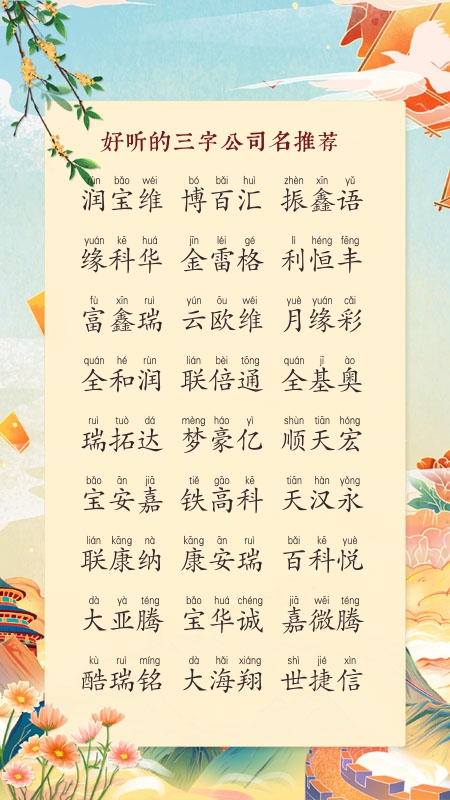 好听的三字公司名推荐
rùn bǎo wéi bó bǎi huì zhèn xīn yǔ
润宝维 博百汇 振鑫语
yuán kē huá jīn léi gé lì héng fēng
缘科华 金雷格 利恒丰
fù xīn ruì yún ōu wéi yuè yuán cǎi
富鑫瑞 云欧维 月缘彩
quán hé rùn lián bèi tōng quán jī ào
全和润 联倍通 全基奥
ruì tuò dá mèng háo yì shùn tiān hóng
瑞拓达 梦豪亿 顺天宏
bǎo ān jiā tiě gāo kē tiān hàn yǒng
宝安嘉 铁高科 天汉永
lián kāng nà kāng ān ruì bǎi kē yuè
联康纳 康安瑞 百科悦
dà yà téng bǎo huá chéng jiā wēi téng
大亚腾 宝华诚 嘉微腾
kù ruì míng dà hǎi xiáng shì jié xìn
酷瑞铭 大海翔 世捷信